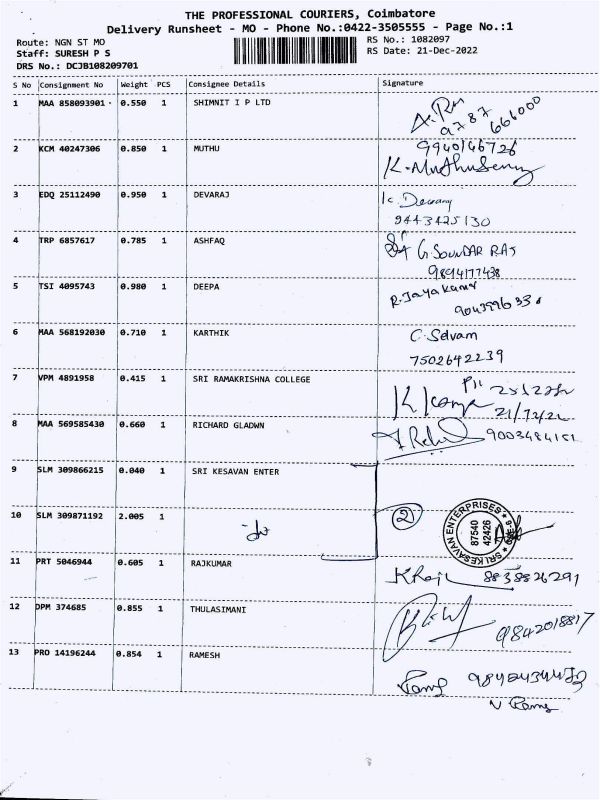 THE PROFESSIONAL COURIERS, Coimbatore
Delivery Runsheet - MO - Phone No.:0422-3505555 - Page No.:1
Route: NGN ST MO RS No.: 1082097
Staff: SURESH P S RS Date: 21-Dec-2022
DRS No.: DCJB108209701
S No Consignment No Weight PCS Consignee Details Signature
1 MAA 858093901 0.550 1 SHIMNIT I P LTD
9787 666000
2 KCM 40247306 0.850 1 MUTHU 9940146726
3 EDQ 25112490 0.950 1 DEVARAJ
9443425130
4 TRP 6857617 0.785 1 ASHFAQ G. SOUNDAR RAJ
9894177438
5 TSI 4095743 0.980 1 DEEPA R. Jayakumar
6 MAA 568192030 0.710 1 KARTHIK C. Selvam
7502642239
7 VPM 4891958 0.415 1 SRI RAMAKRISHNA COLLEGE
8 MAA 569585430 0.660 1 RICHARD GLADWN
9 SLM 309866215 0.040 1 SRI KESAVAN ENTER
10 SLM 309871192 2.005 1 2 SRI KESAVAN ENTERPRISES
87540
42426
11 PRT 5046944 0.605 1 RAJKUMAR 8838826291
12 DPM 374685 0.855 1 THULASIMANI 9842018817
13 PRO 14196244 0.854 1 RAMESH